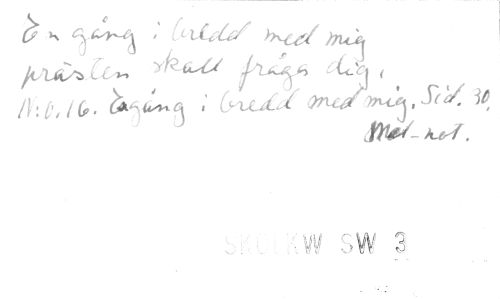 En gång i bredd med mig
prästen skall fråga dig,
N:o. 16. Engång i bredd med mig. Sid. 30.
Med not.
SW 3